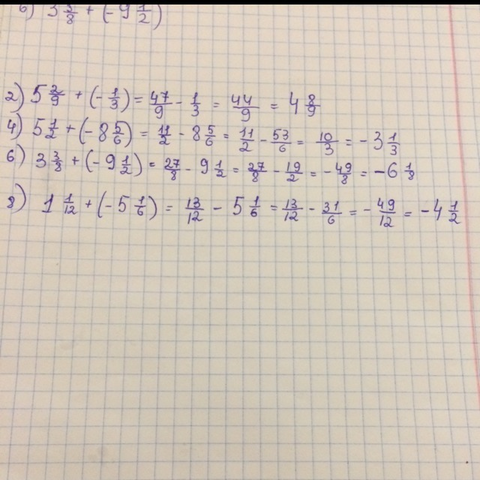 6) 3 3/8 + (- 9 1/2)
2) 5 2/9 + (- 1/3) = 47/9 - 1/3 = 44/9 = 4 8/9
4) 5 1/2 + (- 8 5/6) = 11/2 - 8 5/6 = 11/2 - 53/6 = 10/3 = -3 1/3
6) 3 3/8 + (- 9 1/2) = 27/8 - 9 1/2 = 27/8 - 19/2 = - 49/8 = -6 1/8
8) 1 1/12 + (- 5 1/6) = 13/12 - 5 1/6 = 13/12 - 31/6 = - 49/12 = -4 1/2